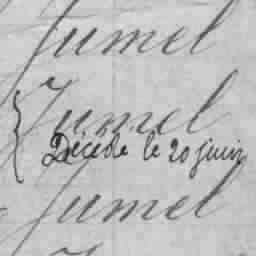 Jumel
Jumel
Décédé le 20 juin
Jumel